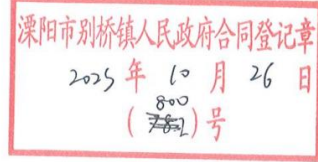 溧阳市别桥镇人民政府合同登记章
2025 年 10 月 26 日
800
(782) 号